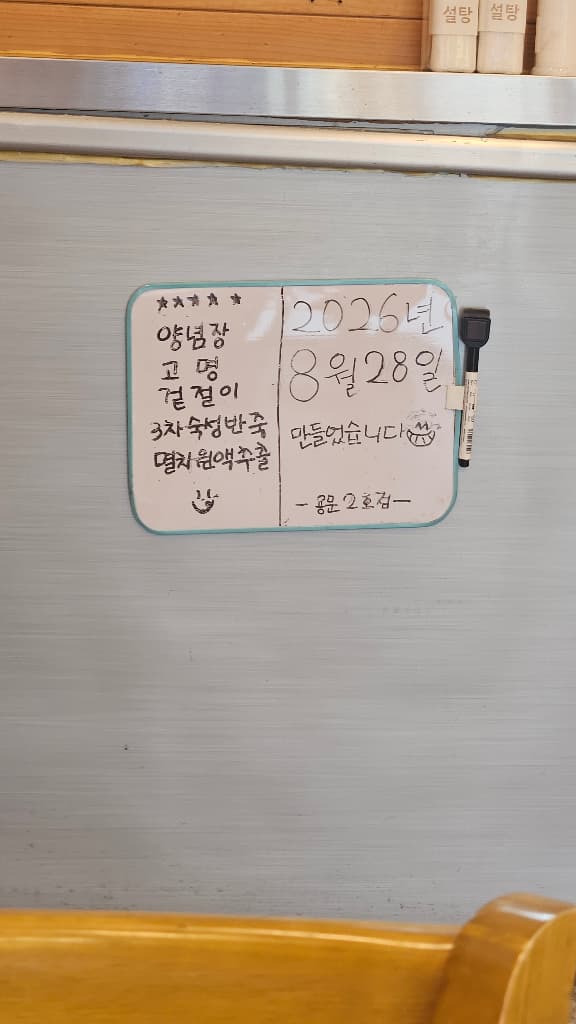 설탕 설탕
★★★★★
양념장
고명
겉절이
3차숙성반죽
멸치원액추출
2026년
8월28일
만들었습니다
- 공문 2호점 -